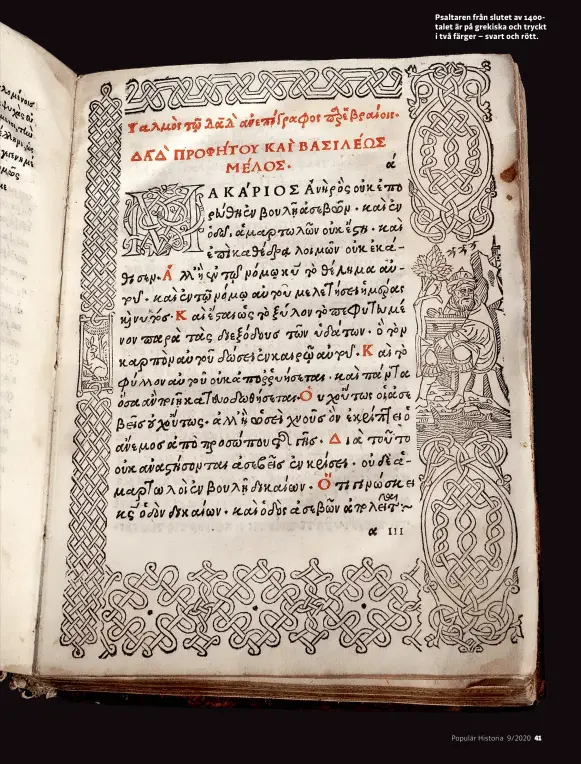 Psaltaren från slutet av 1400-
talet är på grekiska och tryckt
i två färger – svart och rött.
Ψαλμὸς τῷ Δᾱδ̀ ἀνεπίγραφος παρ' ἑβραίοις·
ΔΑΔ̀ ΠΡΟΦΉΤΟΥ ΚΑῚ ΒΑΣΙΛΈΩΣ
ΜΈΛΟΣ· ά
ΜΑΚΆΡΙΟΣ Ἀνὴρ ὃς οὐκ ἐπο
ρεύθη ἐν βουλῇ ἀσεβῶν· καὶ ἐν
ὁδῷ ἁμαρτωλῶν οὐκ ἔστη· καὶ
ἐπὶ καθέδρᾳ λοιμῶν οὐκ ἐκά-
θισεν· Ἀλλ' ἢ ἐν τῷ νόμῳ κυ τὸ θέλημα αὐ-
τοῦ· καὶ ἐν τῷ νόμῳ αὐτοῦ μελετήσει ἡμέρας
κὶ νυκτός· Καὶ ἔσται ὡς τὸ ξύλον τὸ πεφυτευμέ
νον παρὰ τὰς διεξόδους τῶν ὑδάτων· ὃ τὸν
καρπὸν αὐτοῦ δώσει ἐν καιρῷ αὐτοῦ· Καὶ τὸ
φύλλον αὐτοῦ οὐκ ἀποῤῥυήσεται· καὶ πάντα
ὅσα ἂν ποιῇ κατευοδωθήσεται· Οὐχ οὕτως οἱ ἀσε
βεῖς οὐχ οὕτως· ἀλλ' ἢ ὡσεὶ χνοῦς ὃν ἐκρίπτει ὁ
ἄνεμος ἀπὸ προσώπου τῆς γῆς· Διὰ τοῦτο
οὐκ ἀναστήσονται ἀσεβεῖς ἐν κρίσει· οὐδὲ ἁ-
μαρτωλοὶ ἐν βουλῇ δικαίων· Ὅτι γινώσκει
κς ὁδὸν δικαίων· καὶ ὁδὸς ἀσεβῶν ἀπολεῖται
α III
Populär Historia 9/2020 41